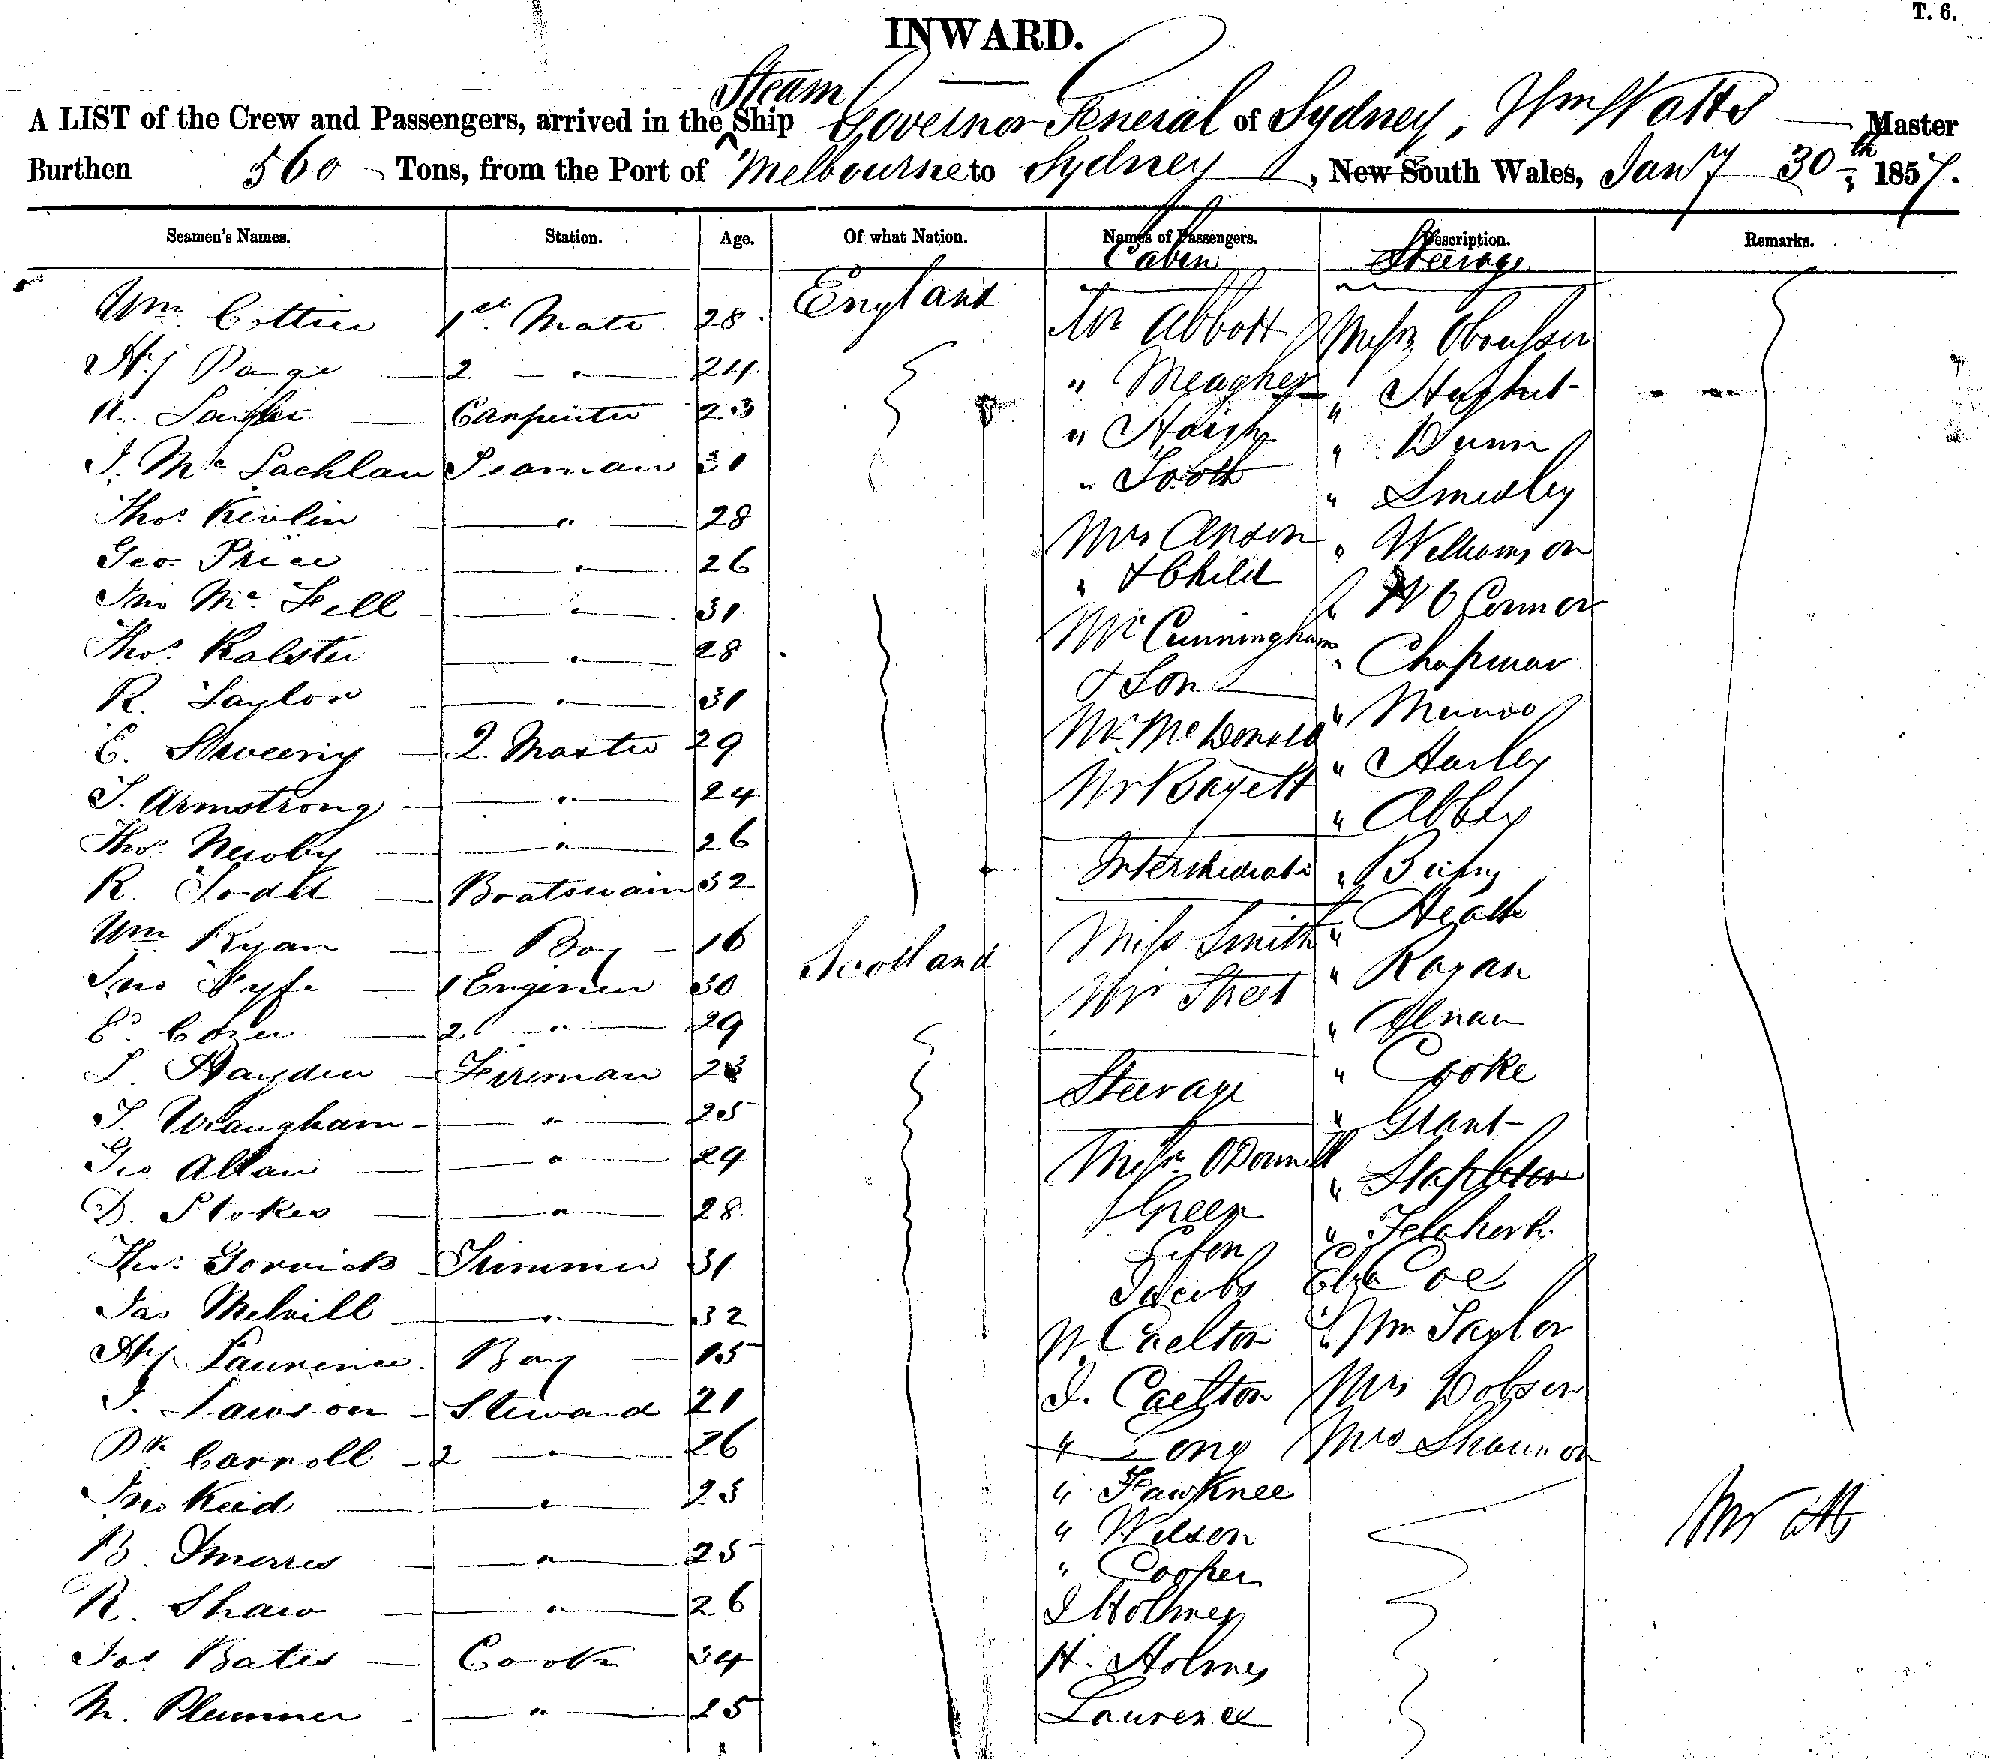 T. 6.
INWARD.
A LIST of the Crew and Passengers, arrived in the Steam Ship Governor General of Sydney, Wm Watts Master
Burthen 560 Tons, from the Port of Melbourne to Sydney, New South Wales, Jany 30th 1857.
Seamen's Names. Station. Age. Of what Nation. Names of Passengers. Description. Remarks.
Cabin Steerage
Wm Cottier 1st Mate 28 England Mr Abbott Messrs
Hy Page 2 " 24 " Meagher "
R. Carpenter 23 " Haigh " Dunn
J. McLachlan Seaman 31 " Tooth " Smedley
Thos Kevlin " 28 Mrs Anson " Williamson
Geo Price " 26 " & Child W O Connor
Jno Mc Fell " 31 Mr Cunningham " Chapman
Thos Ralster " 28 & Son " Munro
R. Taylor " 31 Mr McDonald " Harley
E. Sweeny Q. Master 29 Mr Bayett " Abbey
J. Armstrong " 24
Thos Newby " 26 Intermediate "
R. Boatswain 32 " Heath
Wm Ryan Boy 16 Scotland Miss Smith " Rogan
Jno Fyfe 1 Engineer 30 Mr Street "
E. 2 " 29 " Cooke
S. Hayden Fireman 23 Steerage " Grant
T. Wraugham " 25 " Stapleton
Geo Allan " 29 Messr ODonnell "
D. Stokes " 28 Green
Thos Trimmer 31 Eliz Coe
Jas Melvill " 32 Jacobs " Wm Taylor
Hy Laurence Boy 15 W. Carlton Mrs Dobson
J. Lawson Steward 21 J. Carlton Mrs Shannon
Pk Carroll 2 " 26 " Long
Jno Reid " 23 " Fawknee
B. " 25 " Wilson
R. Shaw " 26 " Cooper
Jos Bates Cook 34 J Holmes
M. Plummer " 25 H. Holmes
Laurence
Wm Watts